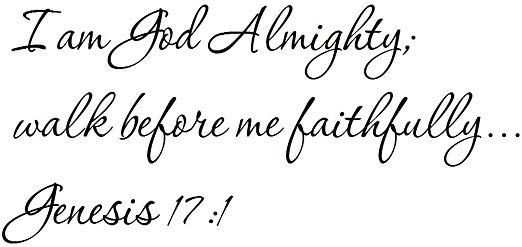 I am God Almighty;
walk before me faithfully...
Genesis 17:1